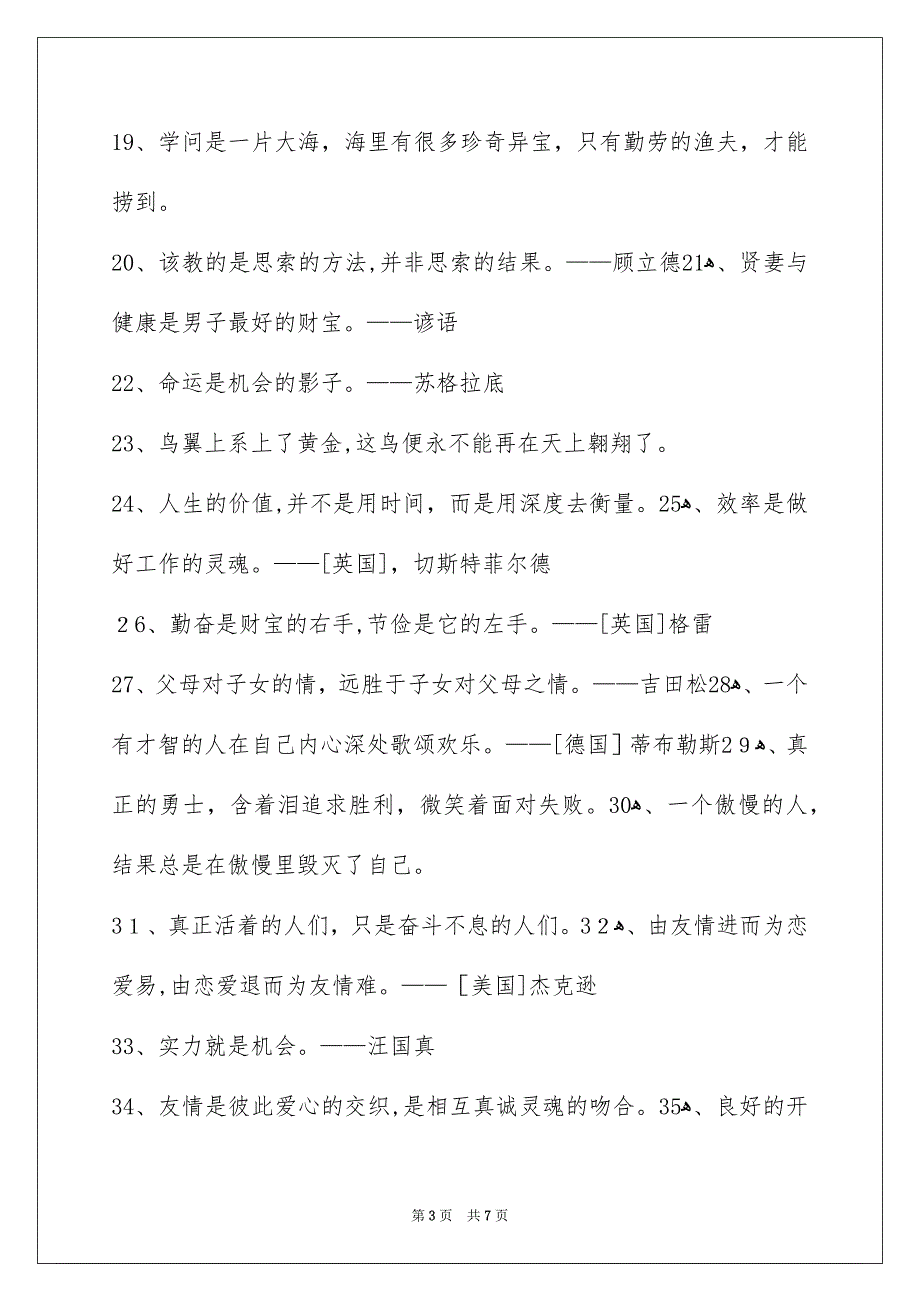 19、学问是一片大海，海里有很多珍奇异宝，只有勤劳的渔夫，才能
捞到。
20、该教的是思索的方法,并非思索的结果。——顾立德21ﻫ、贤妻与
健康是男子最好的财宝。——谚语
22、命运是机会的影子。——苏格拉底
23、鸟翼上系上了黄金,这鸟便永不能再在天上翱翔了。
24、人生的价值,并不是用时间，而是用深度去衡量。25ﻫ、效率是做
好工作的灵魂。——[英国]，切斯特菲尔德
２６、勤奋是财宝的右手,节俭是它的左手。——[英国]格雷
27、父母对子女的情，远胜于子女对父母之情。——吉田松28ﻫ、一个
有才智的人在自己内心深处歌颂欢乐。——[德国］蒂布勒斯2９ﻫ、真
正的勇士，含着泪追求胜利，微笑着面对失败。30ﻫ、一个傲慢的人，
结果总是在傲慢里毁灭了自己。
3１、真正活着的人们，只是奋斗不息的人们。3２ﻫ、由友情进而为恋
爱易,由恋爱退而为友情难。——［美国]杰克逊
33、实力就是机会。——汪国真
34、友情是彼此爱心的交织,是相互真诚灵魂的吻合。35ﻫ、良好的开
第3页 共7页